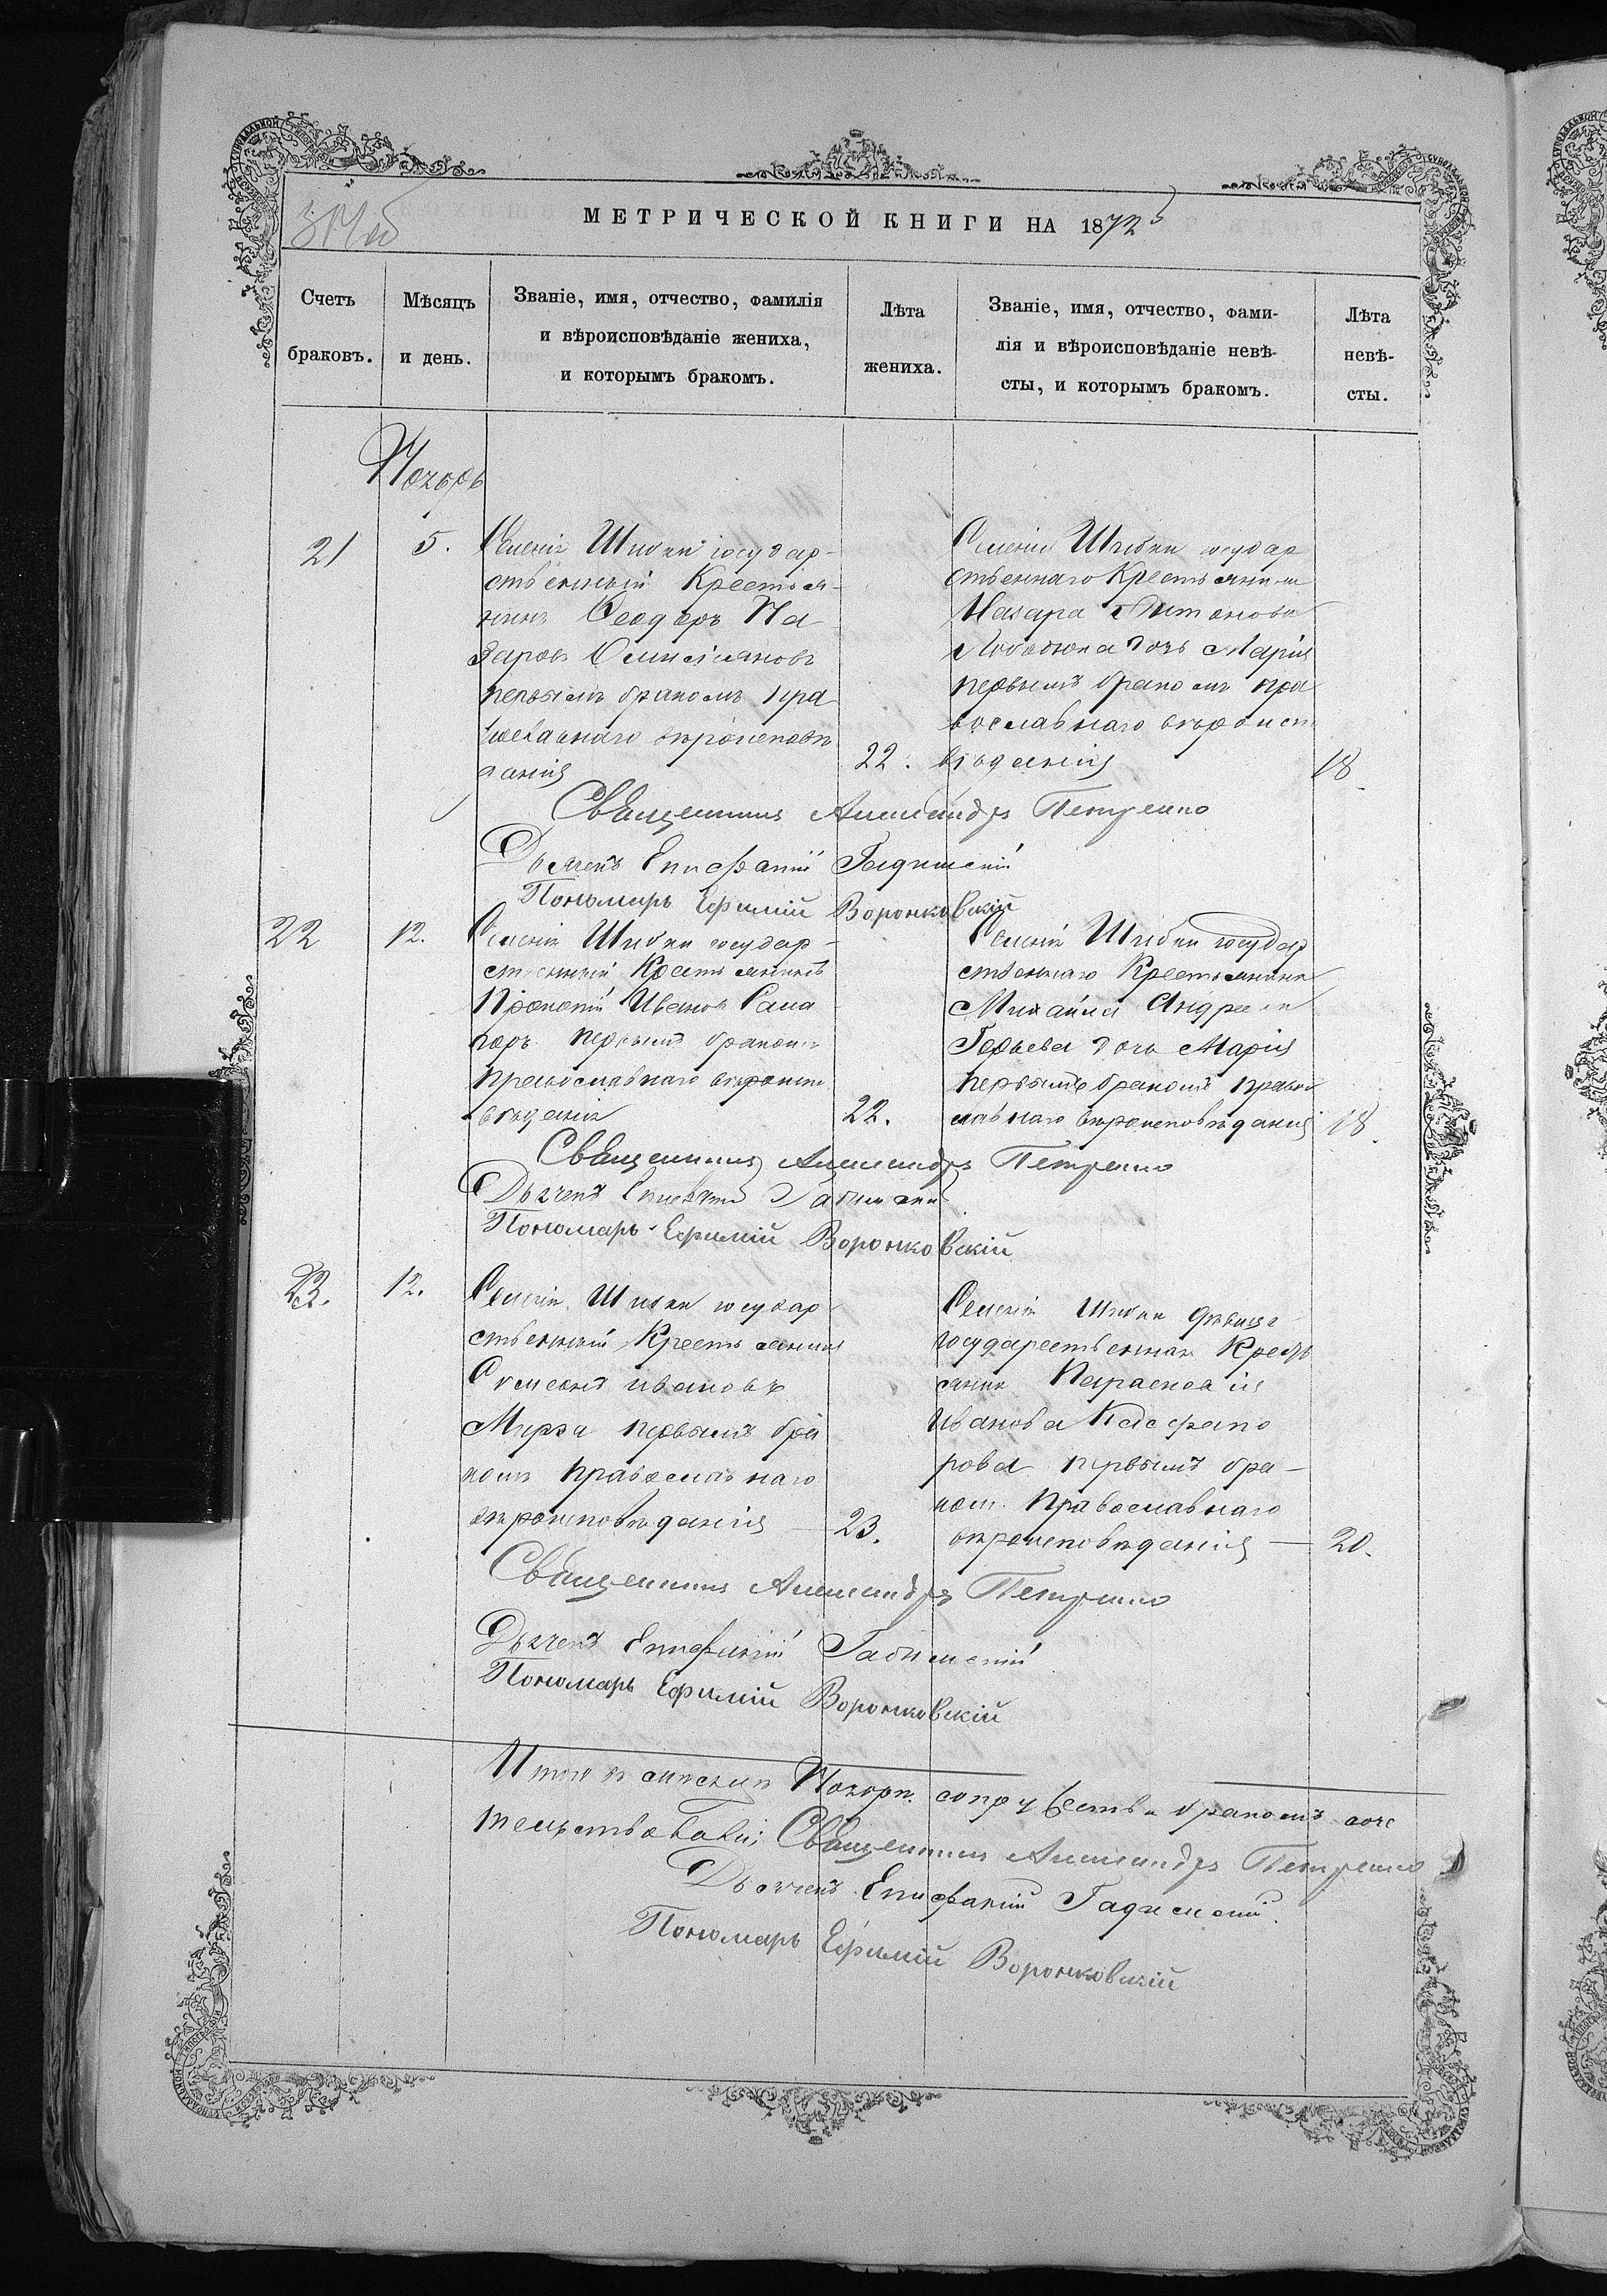 МЕТРИЧЕСКОЙ КНИГИ НА 1872
Счетъ браковъ.
Мѣсяцъ и день.
Званіе, имя, отчество, фамилія
и вѣроисповѣданіе жениха,
и которымъ бракомъ.
Лѣта жениха.
Званіе, имя, отчество, фами-
лія и вѣроисповѣданіе невѣ-
сты, и которымъ бракомъ.
Лѣта невѣ-
сты.
Ноябрь
21
5.
Селенія Шибки государ-
ственный крестья-
нинъ Ѳеодоръ На
заровъ
первымъ бракомъ пра
вославнаго вѣроисповѣ
данія
22.
Селенія Шибки государ
ственнаго Крестьянина
Назара Антонова
дочь Марія
первымъ бракомъ пра
вославнаго вѣроиспо
вѣданія
18
Священникъ Александръ Петренко
Дьячекъ Епифаній
Пономарь Ефимій Воронковскій
22
12.
Селенія Шибки государ-
ственный Крестьянинъ
Прокопій Ивановъ
первымъ бракомъ
православнаго вѣроиспо
вѣданія
22.
Селенія Шибки государ
ственнаго Крестьянина
Михаила Андреева
дочь Марія
первымъ бракомъ право
славнаго вѣроисповѣданія
18.
Священникъ Александръ Петренко
Дьячекъ Епифаній
Пономарь Ефимій Воронковскій
23.
12.
Селенія Шибки государ
ственный Крестьянинъ
Симеонъ Ивановъ
Мирза первымъ бра
комъ православнаго
вѣроисповѣданія
23.
Селенія Шибки дѣвица
государственная Кресть
янка Параскевія
Иванова
первымъ бра-
комъ православнаго
вѣроисповѣданія
20.
Священникъ Александръ Петренко
Дьячекъ Епифаній
Пономарь Ефимій Воронковскій
Священникъ Александръ Петренко
Дьячекъ Епифаній
Пономарь Ефимій Воронковскій